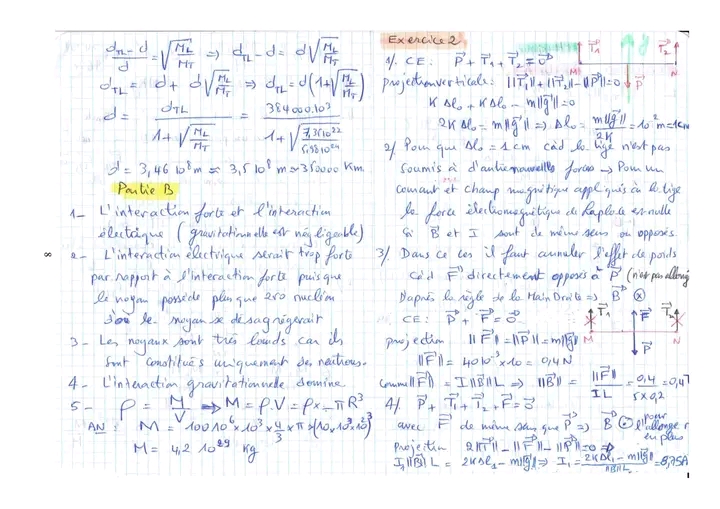 (d_TL - d)/d = √(M_L/M_T) => d_TL - d = d√(M_L/M_T)
d_TL = d + d√(M_L/M_T) => d_TL = d(1+√(M_L/M_T))
d = d_TL/(1+√(M_L/M_T)) = 384000.10³/(1+√(7,35 10²²/5,98 10²⁴))
d = 3,46 10⁸ m ≈ 3,5 10⁸ m ≈ 350000 Km
Partie B
1- L'interaction forte et l'interaction
électrique (gravitationnelle est négligeable)
2- L'interaction électrique serait trop forte
par rapport à l'interaction forte puisque
le noyau possède plus que 210 nucléon
d'où le noyau se désagrégerait
3- Les noyaux sont très lourds car ils
sont constitués uniquement des neutrons.
4- L'interaction gravitationnelle domine.
5- ρ = M/V => M = ρ.V = ρ × πR³
AN : M = 100 10⁶ × 10³ × 4/3 × π × (10 × 10³)³
M = 4,2 10²⁹ kg
∞
Exercice 2
1/. CE: P⃗ + T⃗₁ + T⃗₂ = 0⃗
projection verticale: ||T⃗₁|| + ||T⃗₂|| - ||P⃗|| = 0
K Δl₀ + K Δl₀ - m||g⃗|| = 0
2K Δl₀ = m||g⃗|| => Δl₀ = m||g⃗||/2K = 10⁻² m = 1cm
T⃗₁ y T⃗₂
M P⃗ N
2/ Pour que Δl₀ = 1 cm càd la tige n'est pas
soumis à d'autre nouvelle forces → Pour un
courant et champ magnétique appliqués à la tige
la force électromagnétique de Laplace est nulle
Si B⃗ et I sont de même sens ou opposés.
3/ Dans ce cas il faut annuler l'effet de poids
Càd F⃗ directement opposés à P⃗ (n'est pas allongé
D'après la règle de la Main Droite => B⃗ ⊗
CE: P⃗ + F⃗ = 0⃗
T⃗₁ F⃗
M P⃗ N
projection ||F⃗|| = ||P⃗|| = m||g⃗||
||F⃗|| = 40 10⁻³ × 10 = 0,4 N
comme ||F⃗|| = I||B⃗||L => ||B⃗|| = ||F⃗||/IL = 0,4/(5×0,2) = 0,4T
4/. P⃗ + T⃗₁ + T⃗₂ + F⃗ = 0⃗
avec F⃗ de même sens que P⃗ => B⃗ ⊙ pour
l'allonge
en plus
Projection 2||T⃗|| - ||F⃗|| - ||P⃗|| = 0 =>
I₁||B⃗||L = 2KΔl₁ - m||g⃗|| => I₁ = (2KΔl₁ - m||g⃗||)/||B⃗||L = 8,75A